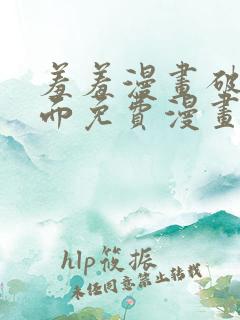 羞羞漫畫破
而免費漫畫
hlp筱振
未经同意禁止转载